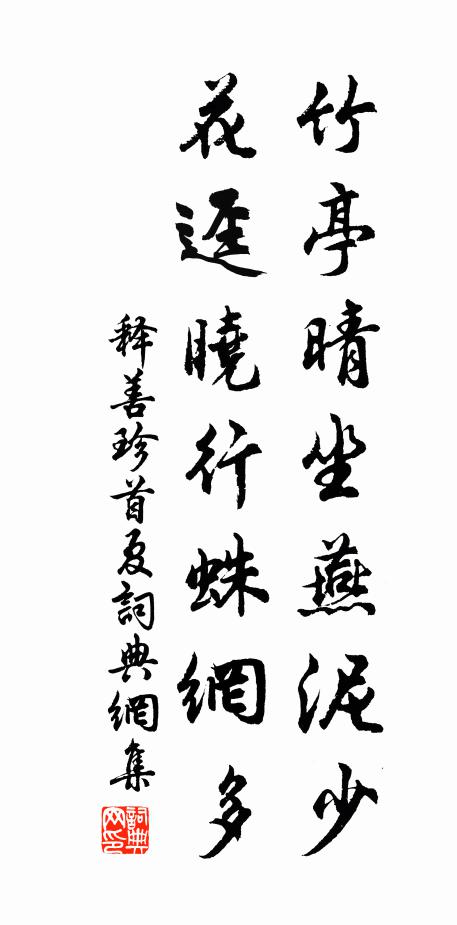 竹亭晴坐燕泥少
花逕曉行蛛網多
释善珍首夏詞典網集
詞典网印